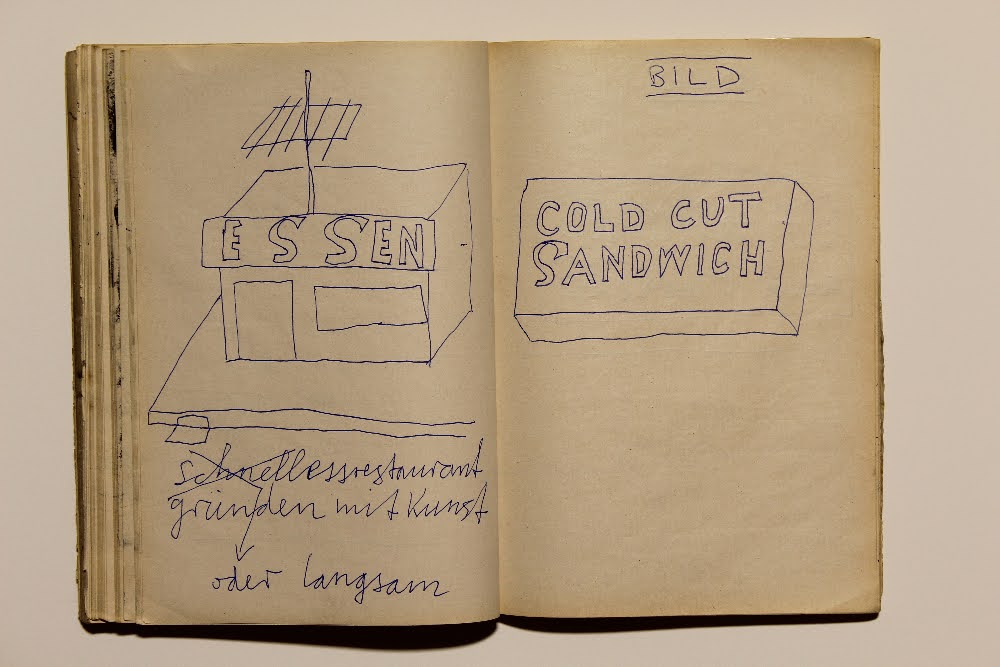 ESSEN
schnellessrestaurant
gründen mit Kunst
oder langsam
BILD
COLD CUT
SANDWICH